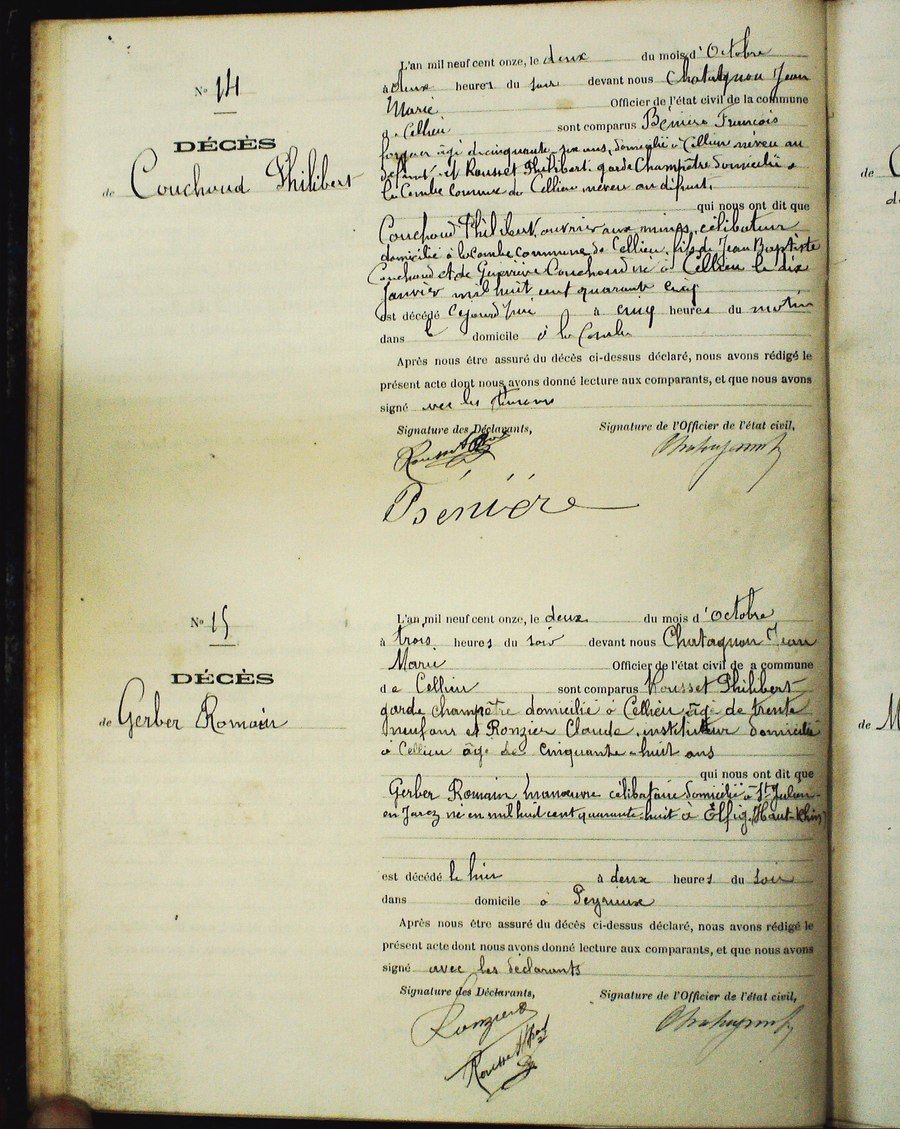 N° 14
DÉCÈS
de Couchoud Philibert
L'an mil neuf cent onze, le deux du mois d'Octobre
à deux heures du soir devant nous Chatagnon Jean
Marie Officier de l'état civil de la commune
de Cellieu sont comparus Bénière François
forgeur âgé de cinquante-six ans, domicilié à Cellieu neveu au
défunt et Rousset Philibert garde Champêtre domicilié à
la Combe commune de Cellieu neveu au défunt,
qui nous ont dit que
Couchoud Philibert, ouvrier aux mines, célibataire
domicilié à la Combe commune de Cellieu, fils de Jean Baptiste
Couchoud et de Couchoud né à Cellieu le dix
Janvier mil huit cent quarante cinq
est décédé Cejourd'hui à cinq heures du matin
dans le domicile à la Combe
Après nous être assuré du décès ci-dessus déclaré, nous avons rédigé le
présent acte dont nous avons donné lecture aux comparants, et que nous avons
signé avec les témoins
Signature des Déclarants, Signature de l'Officier de l'état civil,
Rousset Chatagnon
Bénière
N° 15
DÉCÈS
de Gerber Romain
L'an mil neuf cent onze, le deux du mois d'Octobre
à trois heures du soir devant nous Chatagnon Jean
Marie Officier de l'état civil de a commune
de Cellieu sont comparus Rousset Philibert
garde champêtre domicilié à Cellieu âgé de trente
neuf ans et Ronzier Claude, instituteur domicilié
à Cellieu âgé de cinquante-huit ans
qui nous ont dit que
Gerber Romain manœuvre célibataire domicilié à St Julien
en Jarez né en mil huit cent quarante-huit à Elfig (Haut-Rhin)
est décédé le hier à deux heures du soir
dans domicile à Peyrieux
Après nous être assuré du décès ci-dessus déclaré, nous avons rédigé le
présent acte dont nous avons donné lecture aux comparants, et que nous avons
signé avec les déclarants
Signature des Déclarants, Signature de l'Officier de l'état civil,
Ronzier Chatagnon
Rousset
de
de M